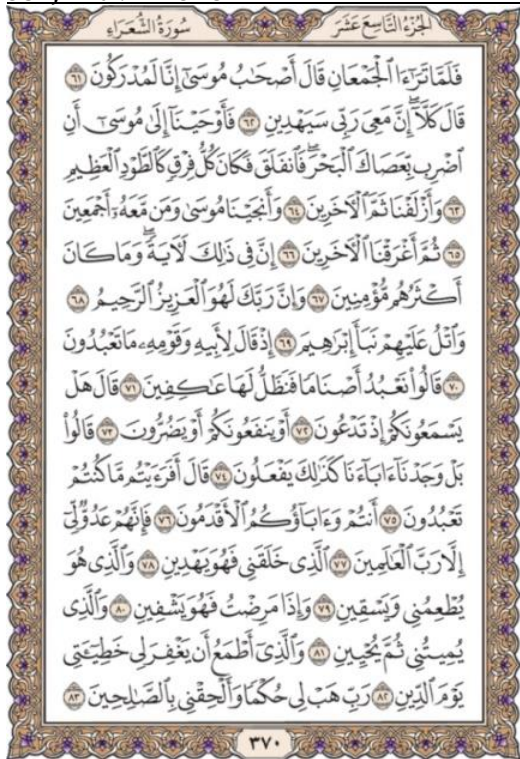 الجزء التاسع عشر
سورة الشعراء
فَلَمَّا تَرَٰٓءَا ٱلْجَمْعَانِ قَالَ أَصْحَٰبُ مُوسَىٰٓ إِنَّا لَمُدْرَكُونَ ٦١
قَالَ كَلَّآ ۖ إِنَّ مَعِىَ رَبِّى سَيَهْدِينِ ٦٢ فَأَوْحَيْنَآ إِلَىٰ مُوسَىٰٓ أَنِ
ٱضْرِب بِّعَصَاكَ ٱلْبَحْرَ ۖ فَٱنفَلَقَ فَكَانَ كُلُّ فِرْقٍ كَٱلطَّوْدِ ٱلْعَظِيمِ
٦٣ وَأَزْلَفْنَا ثَمَّ ٱلْءَاخَرِينَ ٦٤ وَأَنجَيْنَا مُوسَىٰ وَمَن مَّعَهُۥٓ أَجْمَعِينَ
٦٥ ثُمَّ أَغْرَقْنَا ٱلْءَاخَرِينَ ٦٦ إِنَّ فِى ذَٰلِكَ لَءَايَةً ۖ وَمَا كَانَ
أَكْثَرُهُم مُّؤْمِنِينَ ٦٧ وَإِنَّ رَبَّكَ لَهُوَ ٱلْعَزِيزُ ٱلرَّحِيمُ ٦٨
وَٱتْلُ عَلَيْهِمْ نَبَأَ إِبْرَٰهِيمَ ٦٩ إِذْ قَالَ لِأَبِيهِ وَقَوْمِهِۦ مَا تَعْبُدُونَ
٧٠ قَالُوا۟ نَعْبُدُ أَصْنَامًا فَنَظَلُّ لَهَا عَٰكِفِينَ ٧١ قَالَ هَلْ
يَسْمَعُونَكُمْ إِذْ تَدْعُونَ ٧٢ أَوْ يَنفَعُونَكُمْ أَوْ يَضُرُّونَ ٧٣ قَالُوا۟
بَلْ وَجَدْنَآ ءَابَآءَنَا كَذَٰلِكَ يَفْعَلُونَ ٧٤ قَالَ أَفَرَءَيْتُم مَّا كُنتُمْ
تَعْبُدُونَ ٧٥ أَنتُمْ وَءَابَآؤُكُمُ ٱلْأَقْدَمُونَ ٧٦ فَإِنَّهُمْ عَدُوٌّ لِّىٓ
إِلَّا رَبَّ ٱلْعَٰلَمِينَ ٧٧ ٱلَّذِى خَلَقَنِى فَهُوَ يَهْدِينِ ٧٨ وَٱلَّذِى هُوَ
يُطْعِمُنِى وَيَسْقِينِ ٧٩ وَإِذَا مَرِضْتُ فَهُوَ يَشْفِينِ ٨٠ وَٱلَّذِى
يُمِيتُنِى ثُمَّ يُحْيِينِ ٨١ وَٱلَّذِىٓ أَطْمَعُ أَن يَغْفِرَ لِى خَطِيٓـَٔتِى
يَوْمَ ٱلدِّينِ ٨٢ رَبِّ هَبْ لِى حُكْمًا وَأَلْحِقْنِى بِٱلصَّٰلِحِينَ ٨٣
٣٧٠